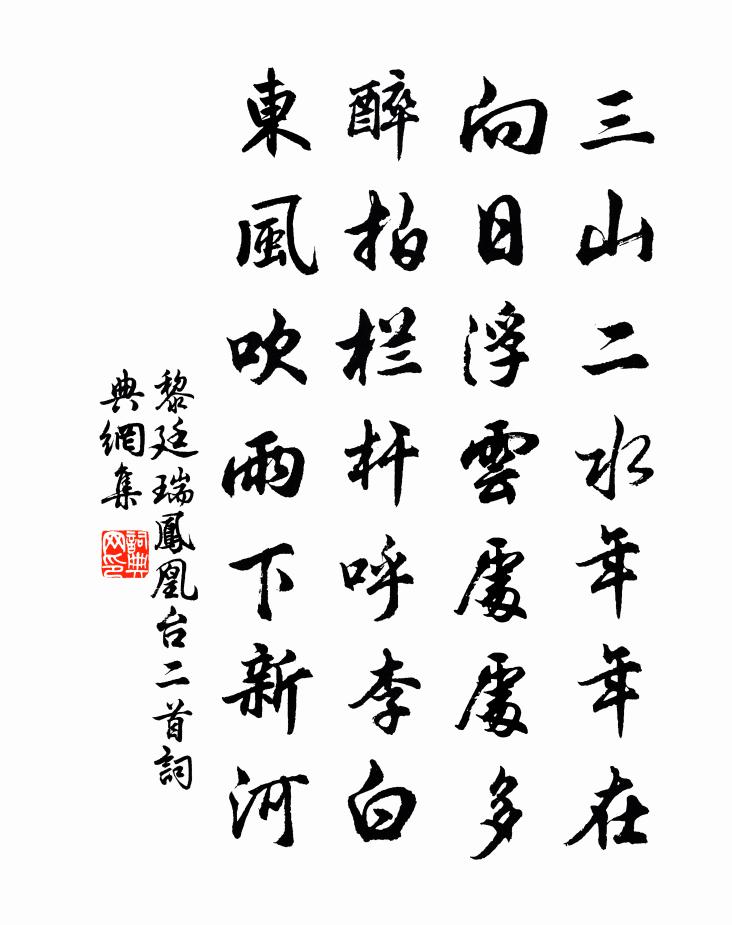 三山二水年年在
向日浮雲處處多
醉拍栏杆呼李白
東風吹雨下新河
黎廷瑞鳳凰台二首詞
典網集
詞典
网印